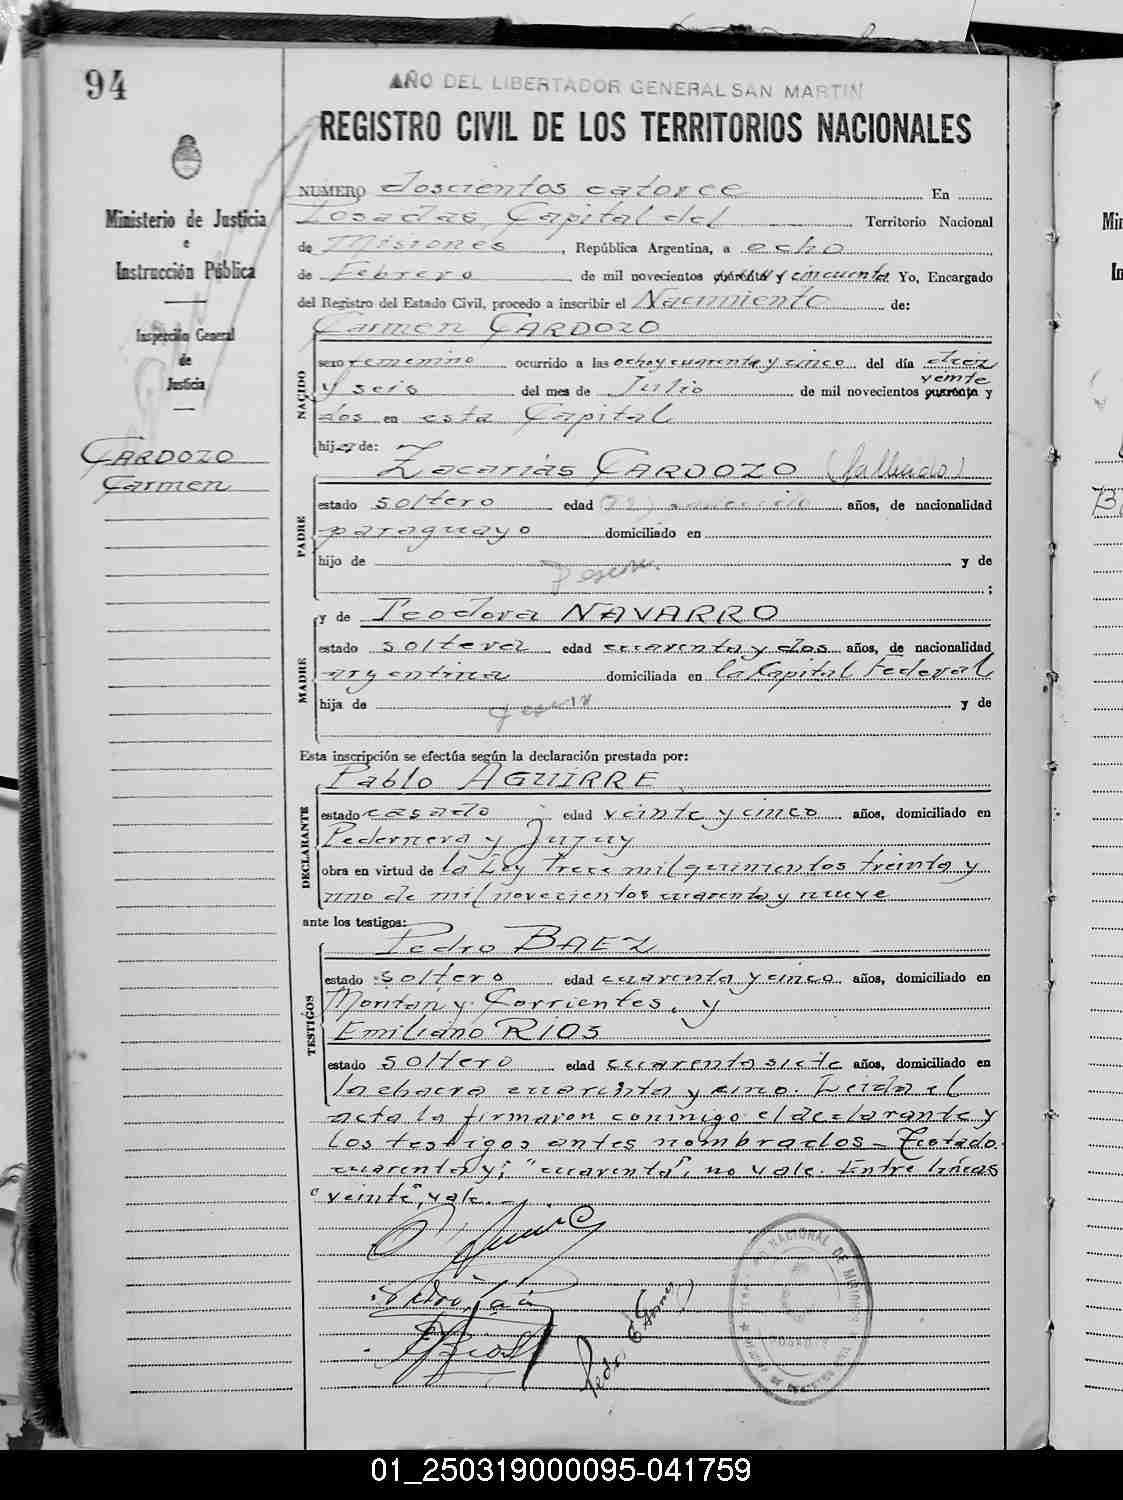 94
AÑO DEL LIBERTADOR GENERAL SAN MARTIN
REGISTRO CIVIL DE LOS TERRITORIOS NACIONALES
Ministerio de Justicia
e
Instrucción Pública
Inspección General
de
Justicia
CARDOZO
Carmen
NÚMERO doscientos catorce En
Posadas, Capital del Territorio Nacional
de Misiones, República Argentina, a ocho
de Febrero de mil novecientos cuarenta y cincuenta Yo, Encargado
del Registro del Estado Civil, procedo a inscribir el Nacimiento de:
Carmen CARDOZO
NACIDO
sexo femenino ocurrido a las ocho y cuarenta y cinco del día diez
veinte
y seis del mes de Julio de mil novecientos cuarenta y
dos en esta Capital
hija de:
Zacarías CARDOZO (fallecido)
PADRE
estado soltero edad años, de nacionalidad
paraguayo domiciliado en
hijo de y de
;
y de Teodora NAVARRO
MADRE
estado soltera edad cuarenta y dos años, de nacionalidad
argentina domiciliada en la Capital Federal
hija de y de
Esta inscripción se efectúa según la declaración prestada por:
Pablo AGUIRRE
DECLARANTE
estado casado edad veinte y cinco años, domiciliado en
Pedernera y Jujuy
obra en virtud de la Ley trece mil quinientos treinta y
uno de mil novecientos cuarenta y nueve
ante los testigos:
Pedro BAEZ
TESTIGOS
estado soltero edad cuarenta y cinco años, domiciliado en
y Corrientes, y
Emiliano RIOS
estado soltero edad cuarenta siete años, domiciliado en
la chacra cuarenta y cinco. Leida el
acta la firmaron conmigo el declarante y
los testigos antes nombrados_ Testado
cuarenta y; "cuarenta", no vale. Entre líneas
"veinte", vale._
POSADAS
01_250319000095-041759